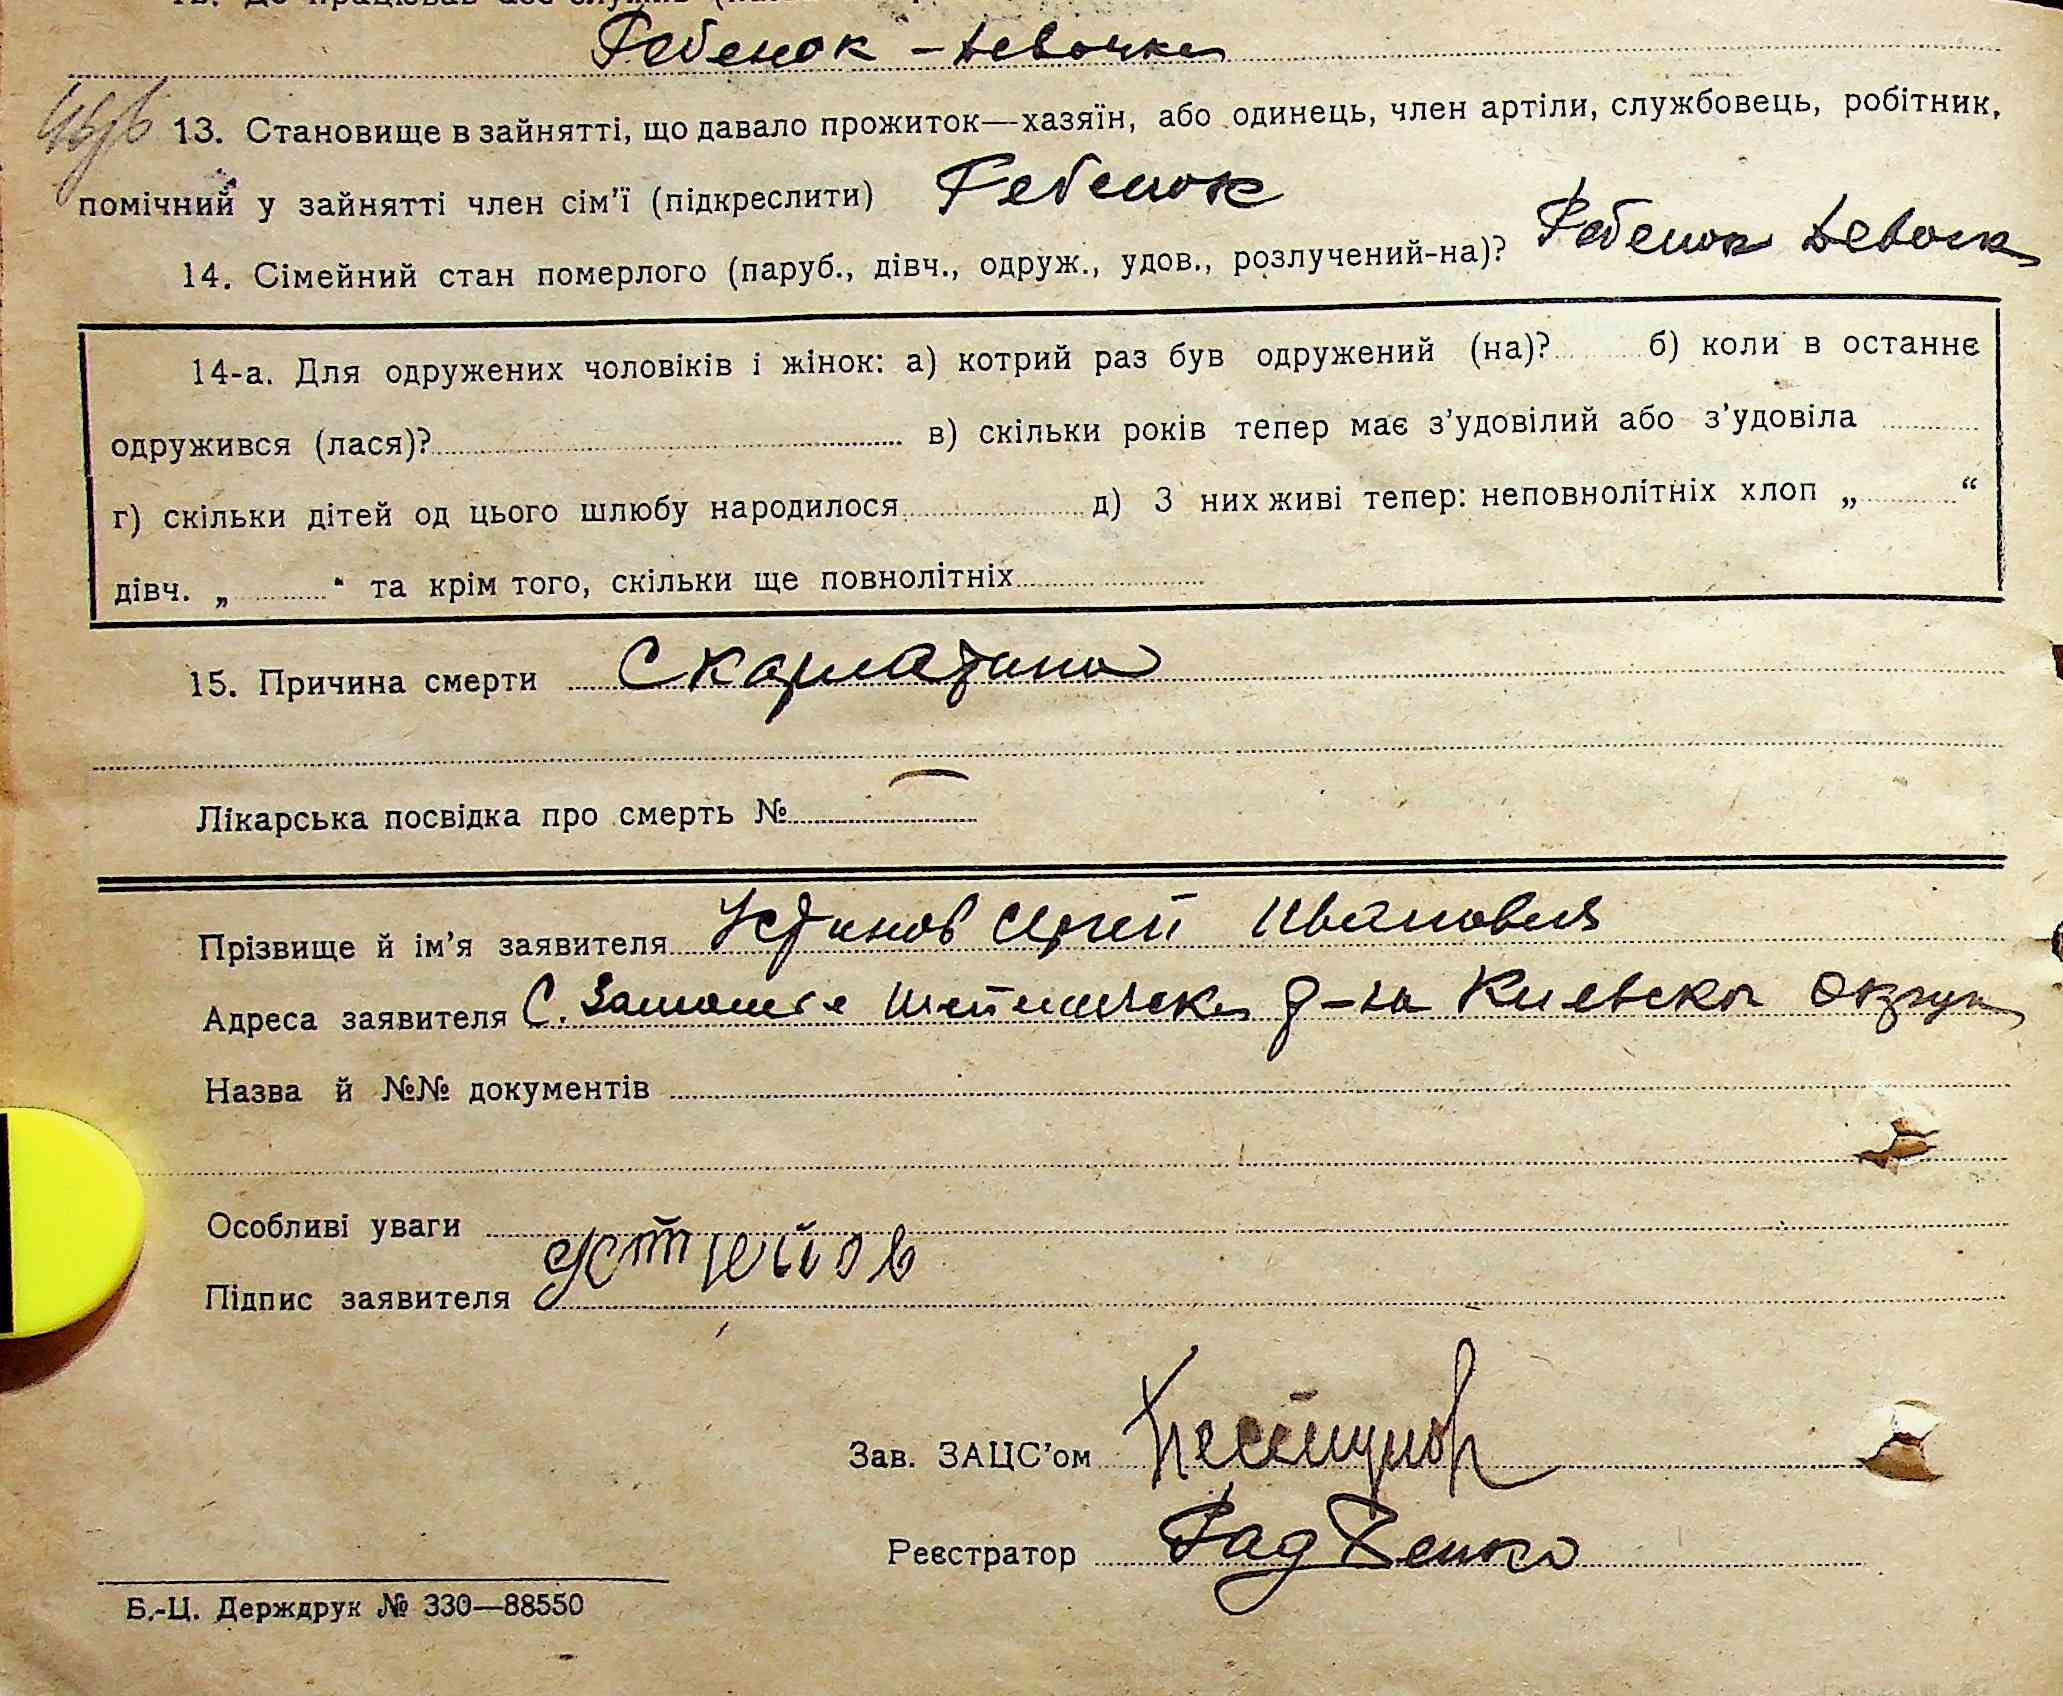 Ребенок – девочка
13. Становище в зайнятті, що давало прожиток—хазяїн, або одинець, член артіли, службовець, робітник,
помічний у зайнятті член сім'ї (підкреслити) Ребенок
14. Сімейний стан померлого (паруб., дівч., одруж., удов., розлучений-на)? Ребенок девочка
14-а. Для одружених чоловіків і жінок: а) котрий раз був одружений (на)? б) коли в останнє
одружився (лася)? в) скільки років тепер має з'удовілий або з'удовіла
г) скільки дітей од цього шлюбу народилося д) З них живі тепер: неповнолітніх хлоп „ “
дівч. „ “ та крім того, скільки ще повнолітніх
15. Причина смерти Скарлатина
Лікарська посвідка про смерть № —
Прізвище й ім'я заявителя Устинов Сергей Иванович
Адреса заявителя С. р-на Киевской округи
Назва й №№ документів
Особливі уваги
Підпис заявителя Устинов
Зав. ЗАЦС'ом
Реєстратор Радченко
Б.-Ц. Держдрук № 330—88550